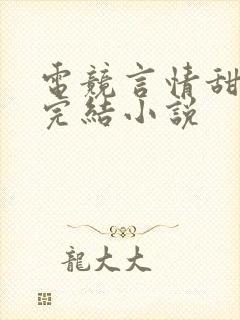 電競言情甜
完結小說
龍大大